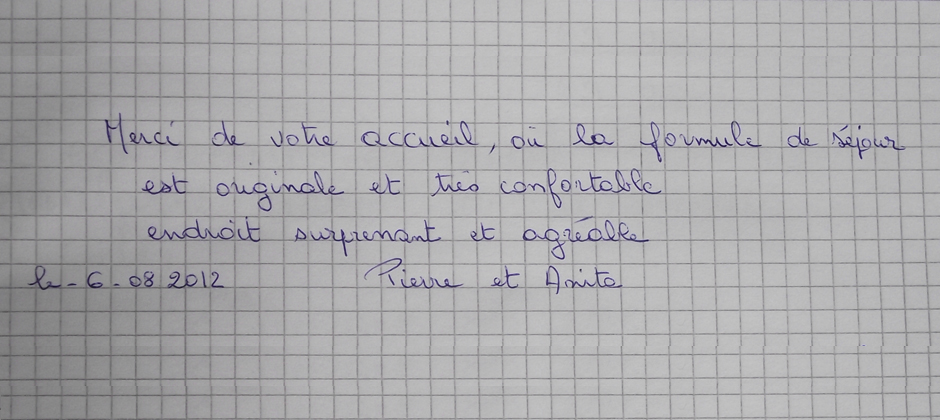 Merci de votre accueil, où la formule de séjour
est originale et très confortable
endroit surprenant et agréable
le - 6 - 08 2012 Pierre et Anita